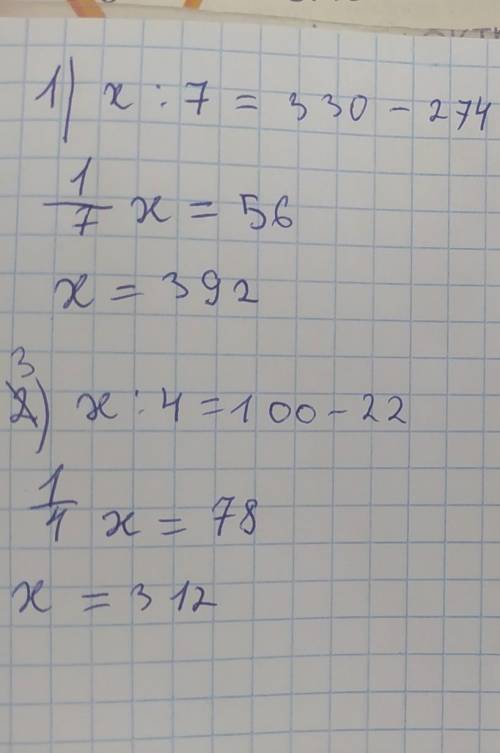 1) x : 7 = 330 - 274
1/7 x = 56
x = 392
3) x : 4 = 100 - 22
1/4 x = 78
x = 312